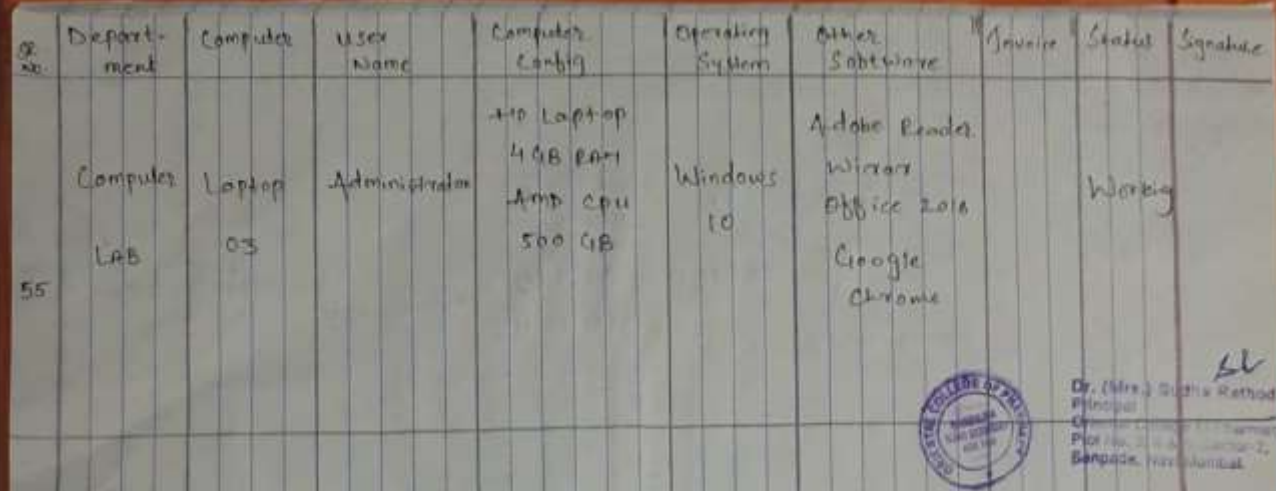 Sr. No. Depart-ment Computer User Name Computer Config Operating System Other Software Invoice Status Signature
55 Computer LAB
Laptop 03
Administrator
HP Laptop
4 GB RAM
AMD CPU
500 GB
Windows
10
Adobe Reader
Winrar
Office 2016
Google
Chrome
Working
COLLEGE OF
Dr. (Mrs.) Sudha Rathod
Principal
Sanpada, Navi Mumbai